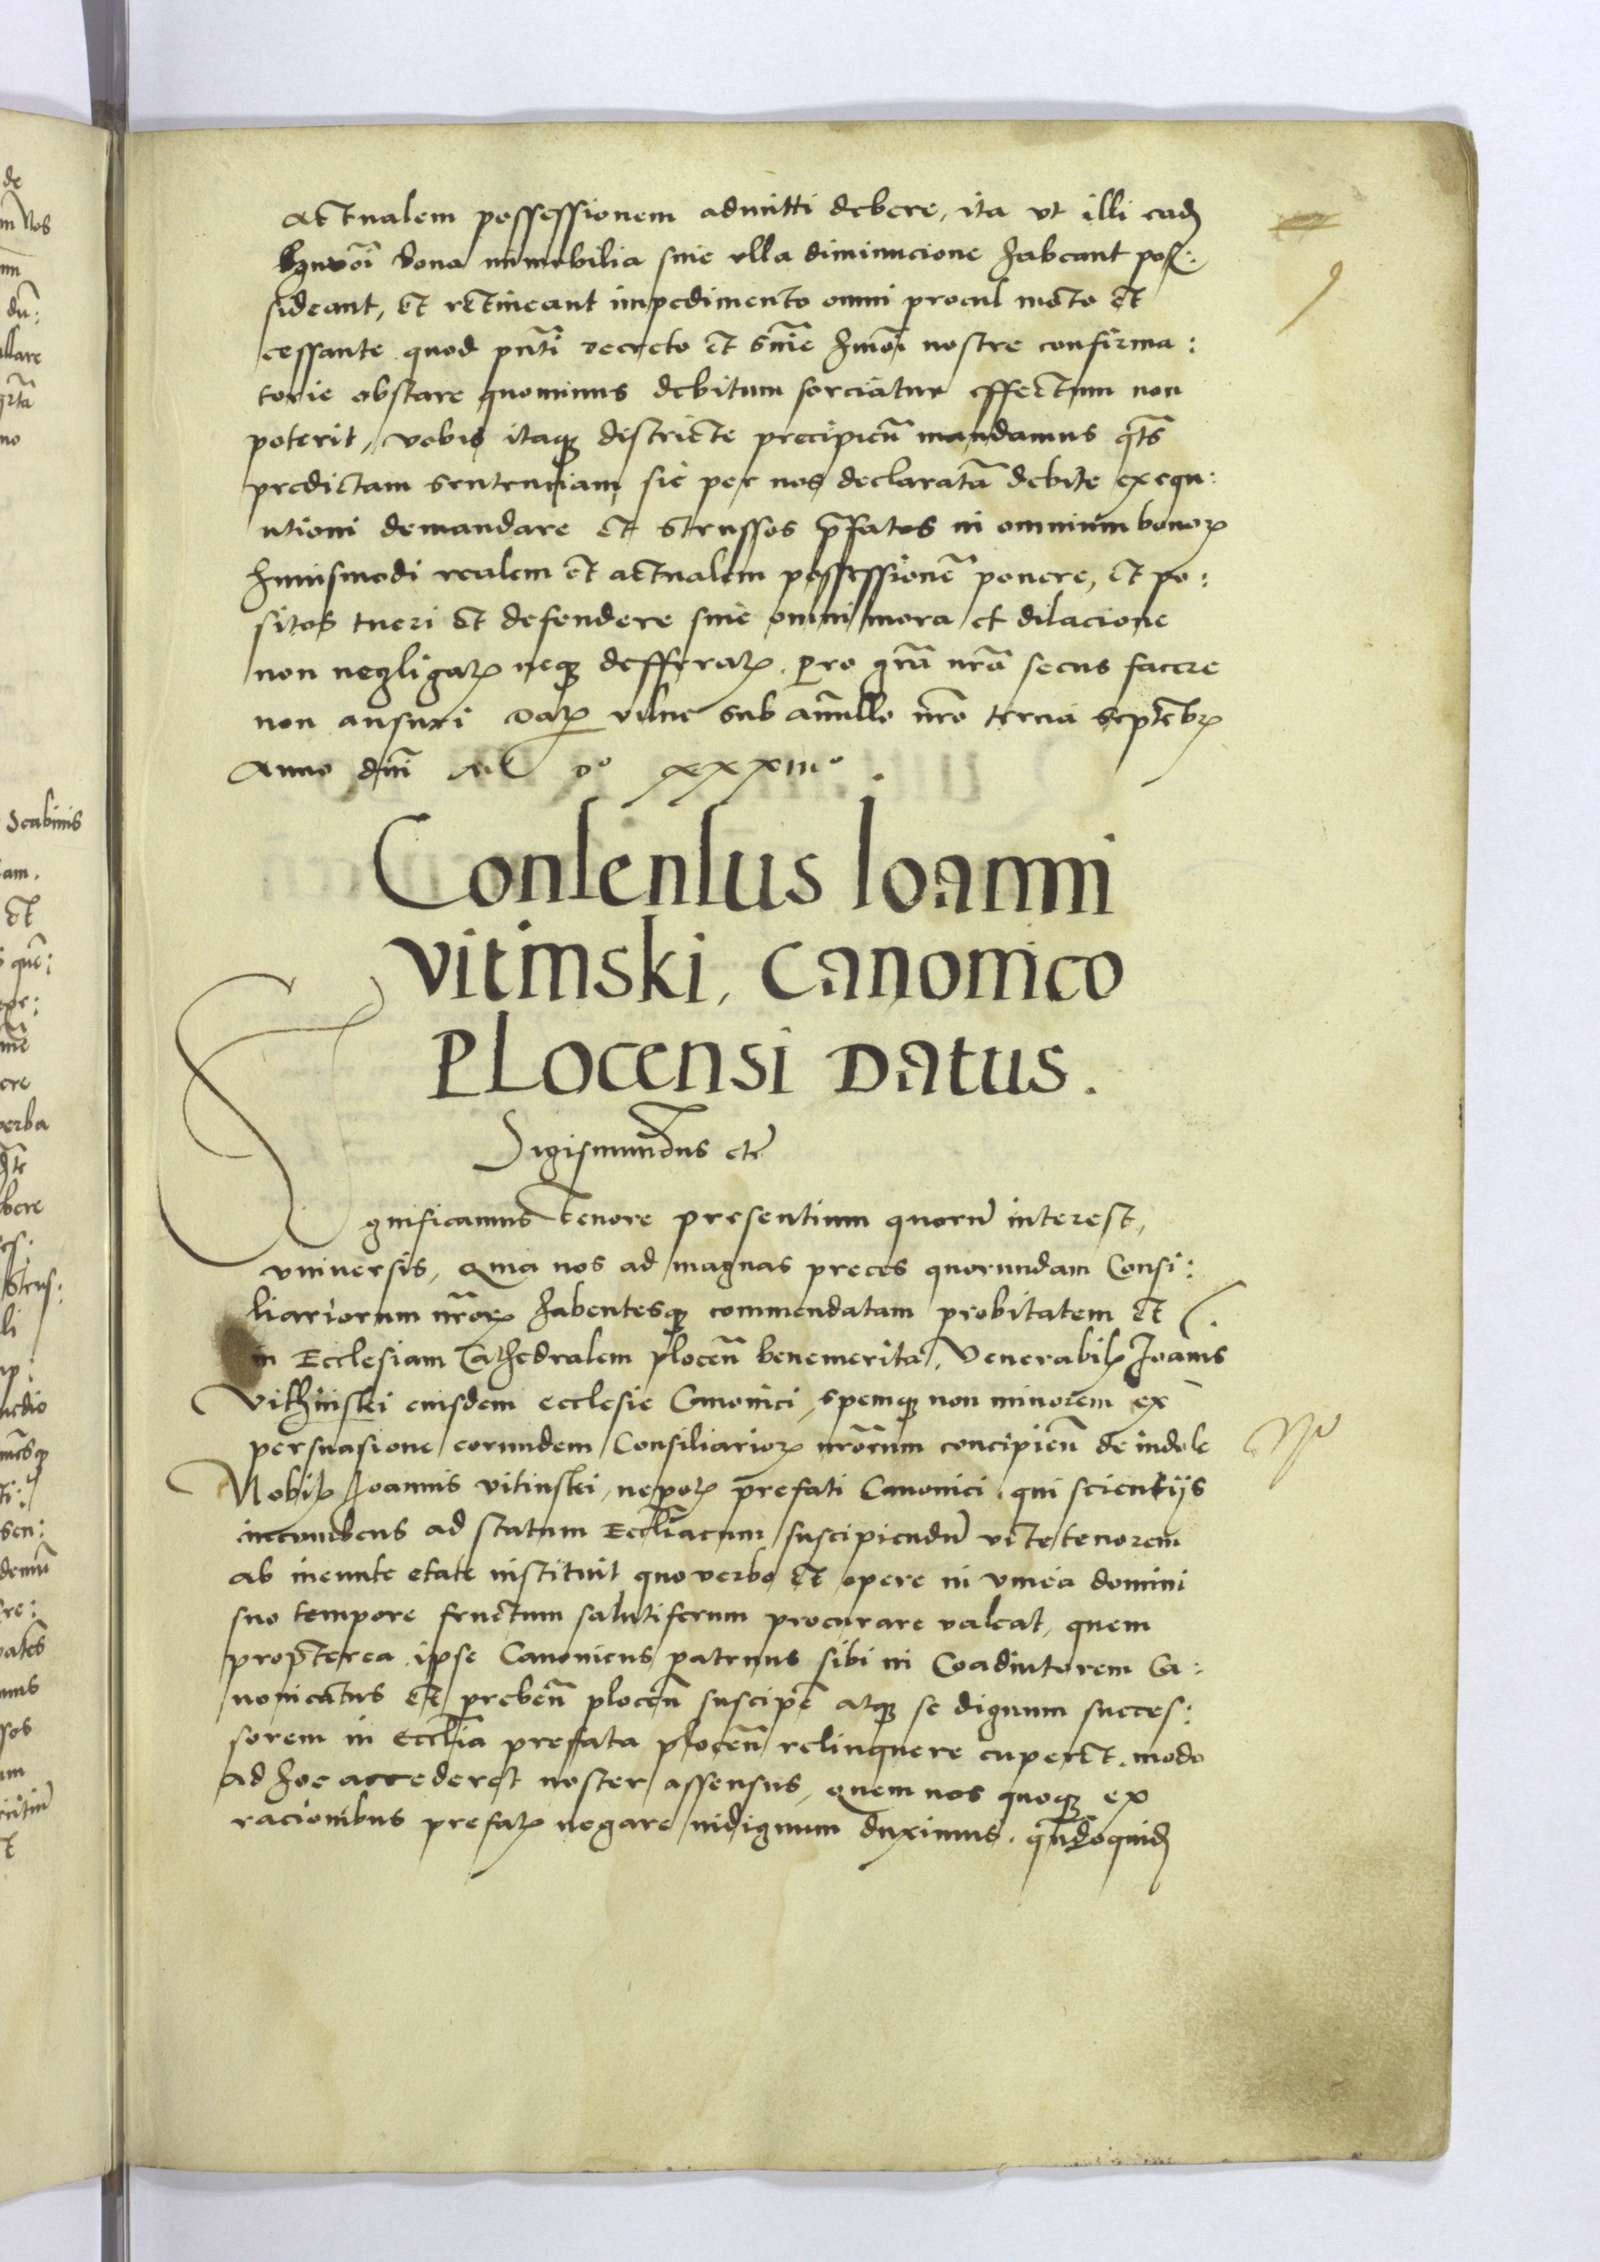 actualem possessionem admitti debere, ita ut illi eadē
hmōi bona immobilia sine ulla diminucione habeant pos:
sideant, et retineant impedimento omni procul moto et
cessante quod pnti decreto et sñie hmōi nostre confirma:
torie obstare quominus debitum sorciatur effectum non
poterit, vobis itaq districte precipieñ mandamus qtš
predictam sentenciam sic per nos declaratā debite exequ:
utioni demandare et Strussos pfatos in omnium bonorꝫ
huiusmodi realem et actualem possessionē ponere, et po:
sitos tueri et defendere sine omni mora et dilacione
non negligatꝫ neqꝫ defferatꝫ. pro grā nrā secus facere
non ansuri Datꝫ vilne sub annullo nr̄o tercia septēbrꝫ
Anno dnī M D° xxxiii°.
Consensus Ioanni
vitinski, canonico
Plocensi Datus.
Sigismundus etc
Significamus tenore presentium quorū interest,
universis, Quia nos ad magnas preces quorundam Consi:
liariorum nr̄orꝫ habentesqꝫ commendatam probitatem et
in Ecclesiam Cathedralem plocen̄ benemeritā, Venerabilꝫ Joānis
Vithinski eiusdem ecclesie Canonici, spemqꝫ non minorem ex
persuasione eorundem Consiliariorꝫ nr̄orum concipien̄ de indole
Nobilꝫ Joannis vitinski, nepotꝫ prefati Canonici, qui scientijs
incumbens ad statum Eccl̄iacum suscipiendū vite tenorem
ab ineunte etate instituit quo verbo et opere in vinea domini
suo tempore fructum salutiferum procurare valeat, quem
propterea ipse Canonicus patruus sibi in Coadiutorem Ca:
nonicatus et preben̄ plocen̄ suscipe atqꝫ se dignum succes:
sorem in Eccl̄ia prefata plocen̄ relinquere cuperet, modo
ad hoc accederet noster assensus, quem nos quoqꝫ ex
racionibus prefatꝫ negare indignum duximus. qn̄doquidē